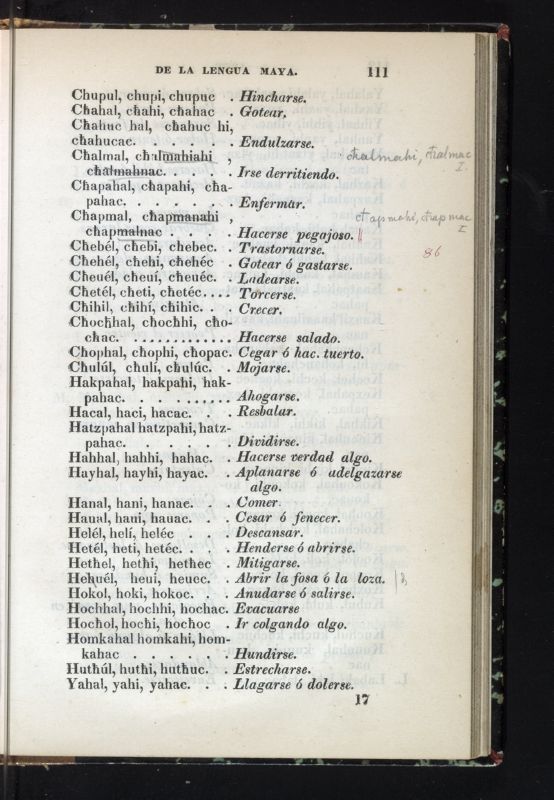 DE LA LENGUA MAYA. 111
Chupul, chupi, chupuc . Hincharse.
Cħahal, cħahi, cħahac . Gotear.
Cħahuc hal, cħahuc hi,
cħahucac. . . . . . Endulzarse.
Cħalmal, cħulmahiahi
cħalmahnac. . . . . Irse derritiendo.
Cħapahal, cħapahi, cħa-
pahac. . . . . . . Enfermar.
Cħapmal, cħapmanahi ,
cħapmalnac . . . . Hacerse pegajoso.
Cħebél, cħebi, cħebec. . Trastornarse.
Cħehél, cħehi, cħehéc . Gotear ó gastarse.
Cħeuél, cħeuí, cħeuéc. . Ladearse.
Cħetél, cħeti, cħetéc.... Torcerse.
Cħihil, cħihí, cħihic. . . Crecer.
Cħocħhal, cħocħhi, cħo-
cħac. ............ Hacerse salado.
Cħophal, cħophi, cħopac. Cegar ó hac. tuerto.
Cħulúl, cħulí, cħulúc. . Mojarse.
Hakpahal, hakpahi, hak-
pahac. . . ....... Ahogarse.
Hacal, haci, hacac. . . Resbalar.
Hatzpahal hatzpahi, hatz-
pahac. . . . . . . Dividirse.
Hahhal, hahhi, hahac. . Hacerse verdad algo.
Hayhal, hayhi, hayac. . Aplanarse ó adelgazarse
algo.
Hanal, hani, hanac. . . Comer
Haual, haui, hauac. . . Cesar ó fenecer.
Helél, helí, heléc . . . Descansar.
Hetél, heti, hetéc. . . . Henderse ó abrirse.
Hetħel, hetħi, hetħec . Mitigarse.
Hehuél, heui, heuec. . Abrir la fosa ó la loza.
Hokol, hoki, hokoc. . . Anudarse ó salirse.
Hochhal, hochhi, hochac. Evacuarse
Hocħol, hocħi, hocħoc . Ir colgando algo.
Homkahal homkahi, hom-
kahac . . . . . . Hundirse.
Hutħúl, hutħi, hutħuc. . Estrecharse.
Yahal, yahi, yahac. . . Llagarse ó dolerse.
17
cħalmahi, cħalmac
I.
cħapmahi, cħapmac
I
86